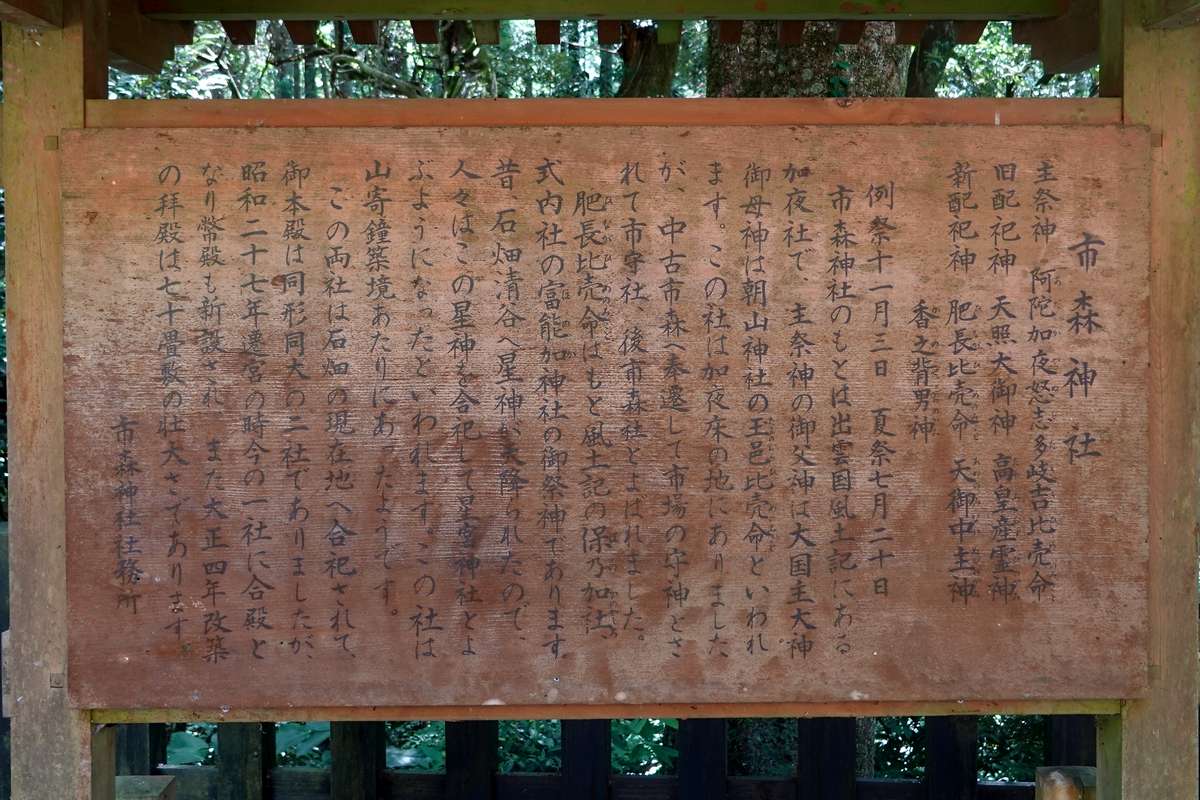 市森神社
主祭神　阿陀加夜怒志多岐吉比売命
旧配祀神　天照大御神　高皇産霊神
新配祀神　肥長比売命　天御中主神
香之背男神
例祭十一月三日　夏祭七月二十日
市森神社のもとは出雲国風土記にある
加夜社で、主祭神の御父神は大国主大神
御母神は朝山神社の玉邑比売命といわれ
ます。この社は加夜床の地にありました
が、中古市森へ奉遷して市場の守神とさ
れて市守社、後市森社とよばれました。
肥長比売命はもと風土記の保乃加社、
式内社の富能加神社の御祭神であります。
昔、石畑清谷へ星神が天降られたので、
人々はこの星神を合祀して星宮神社とよ
ぶようになったといわれます。この社は
山寄鐘築境あたりにあったようです。
この両社は石畑の現在地へ合祀されて、
御本殿は同形同大の二社でありましたが、
昭和二十七年遷宮の時今の一社に合殿と
なり幣殿も新設され　また大正四年改築
の拝殿は七十畳敷の壮大さであります
市森神社社務所